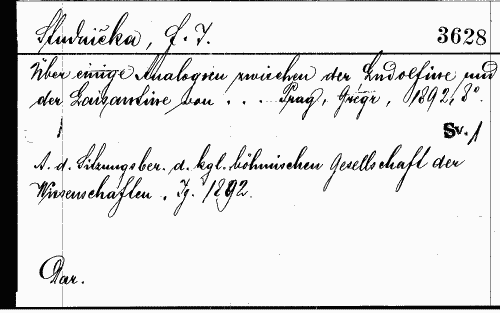 Studnička, F. J. 3628
Über einige Analogien zwischen der Ludolfine und
der Laisantine von . . . Prag, Grégr, 1892, 8°.
Sv. 1
A. d. Sitzungsber. d. kgl. böhmischen Gesellschaft der
Wissenschaften. Jg. 1892.
Dar.